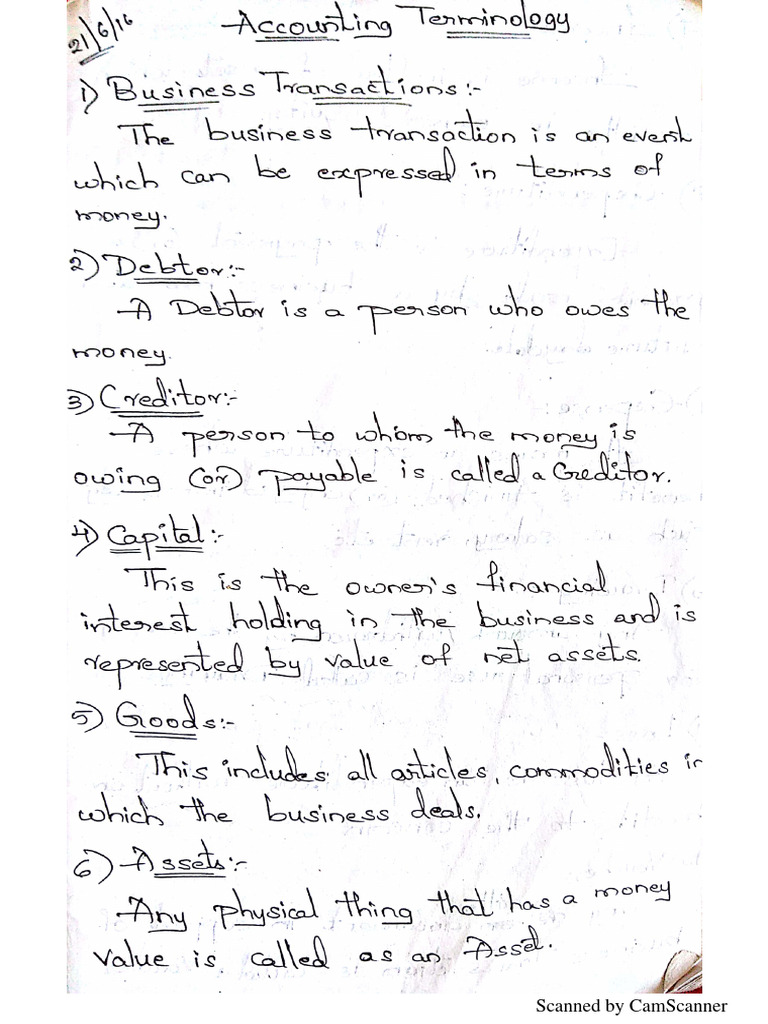 21/6/16
Accounting Terminology
1) Business Transactions:-
The business transaction is an event
which can be expressed in terms of
money.
2) Debtor:-
A Debtor is a person who owes the
money.
3) Creditor:-
A person to whom the money is
owing (or) payable is called a Creditor.
4) Capital:-
This is the owner's financial
interest holding in the business and is
represented by value of net assets.
5) Goods:-
This includes all articles, commodities in
which the business deals.
6) Assets:-
Any physical thing that has a money
value is called as an Asset.
Scanned by CamScanner